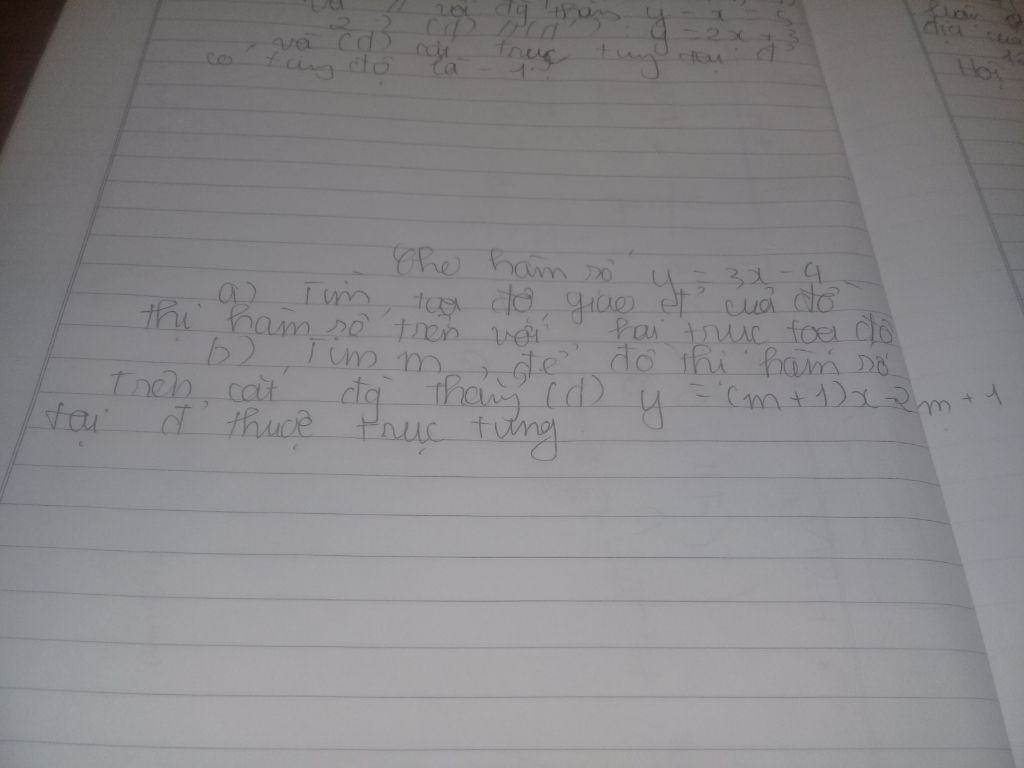 và // với đg thẳng y = x - 5
2) (d) // (d'): y = 2x + 3
và (d) cắt trục tung tại đ
có tung độ là - 1.
Cho hàm số y = 3x - 4
a) Tìm tọa độ giao đ' của đồ
thị hàm số trên với hai trục tọa độ
b) Tìm m, để đồ thị hàm số
trên cắt đg thẳng (d) y = (m + 1)x - 2m + 1
tại đ thuộc trục tung